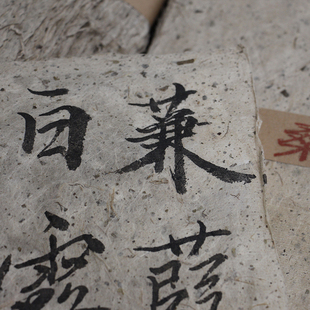 蒹葭
白露